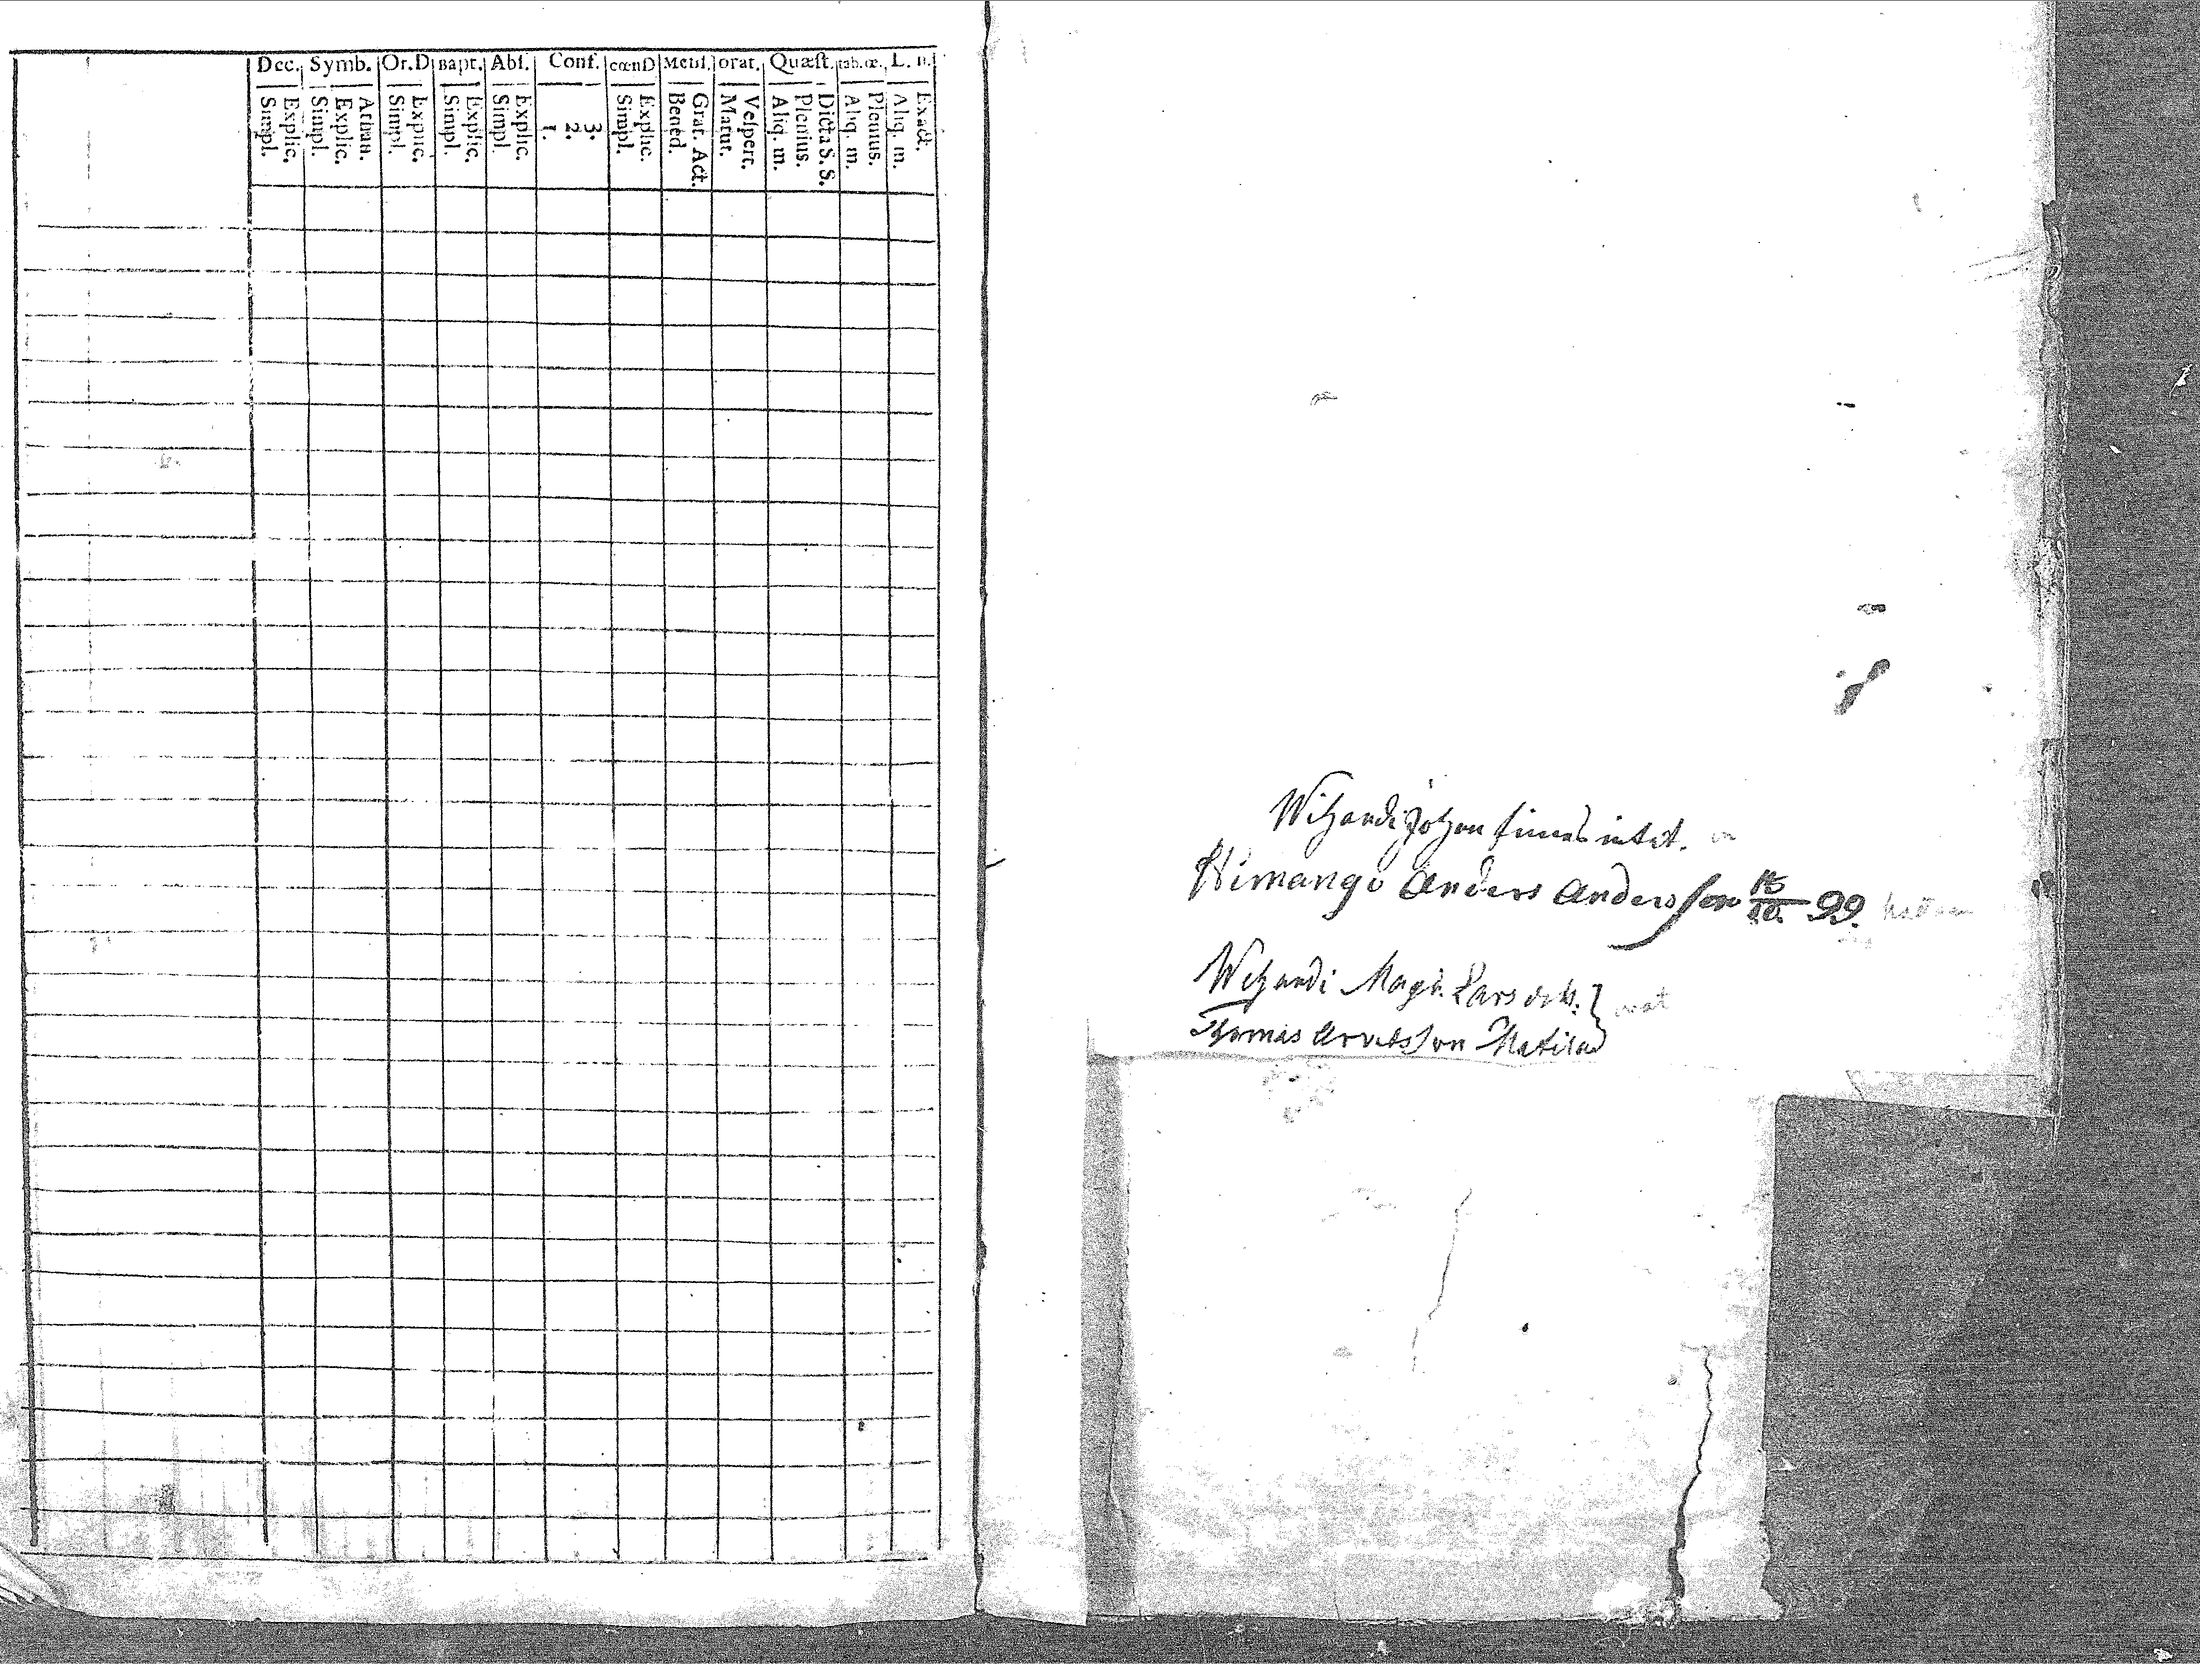 Dec. Symb. Or.D Bapt. Abs. Conf. cœnD Mens. orat. Quæst. tab.œ. L. n.
Simpl. Explic. Simpl. Explic. Athan. Simpl. Explic. Simpl. Explic. Simpl. Explic. 1. 2. 3. Simpl. Explic. Bened. Grat. Act. Matut. Vespert. Aliq. m. Plenius. Dicta S. S. Aliq. m. Plenius. Aliq. m. Exact.
Wihandi Johan finnes intet.
Himango Anders Andersson 99.
Wihandi Magn. Lars
Thomas